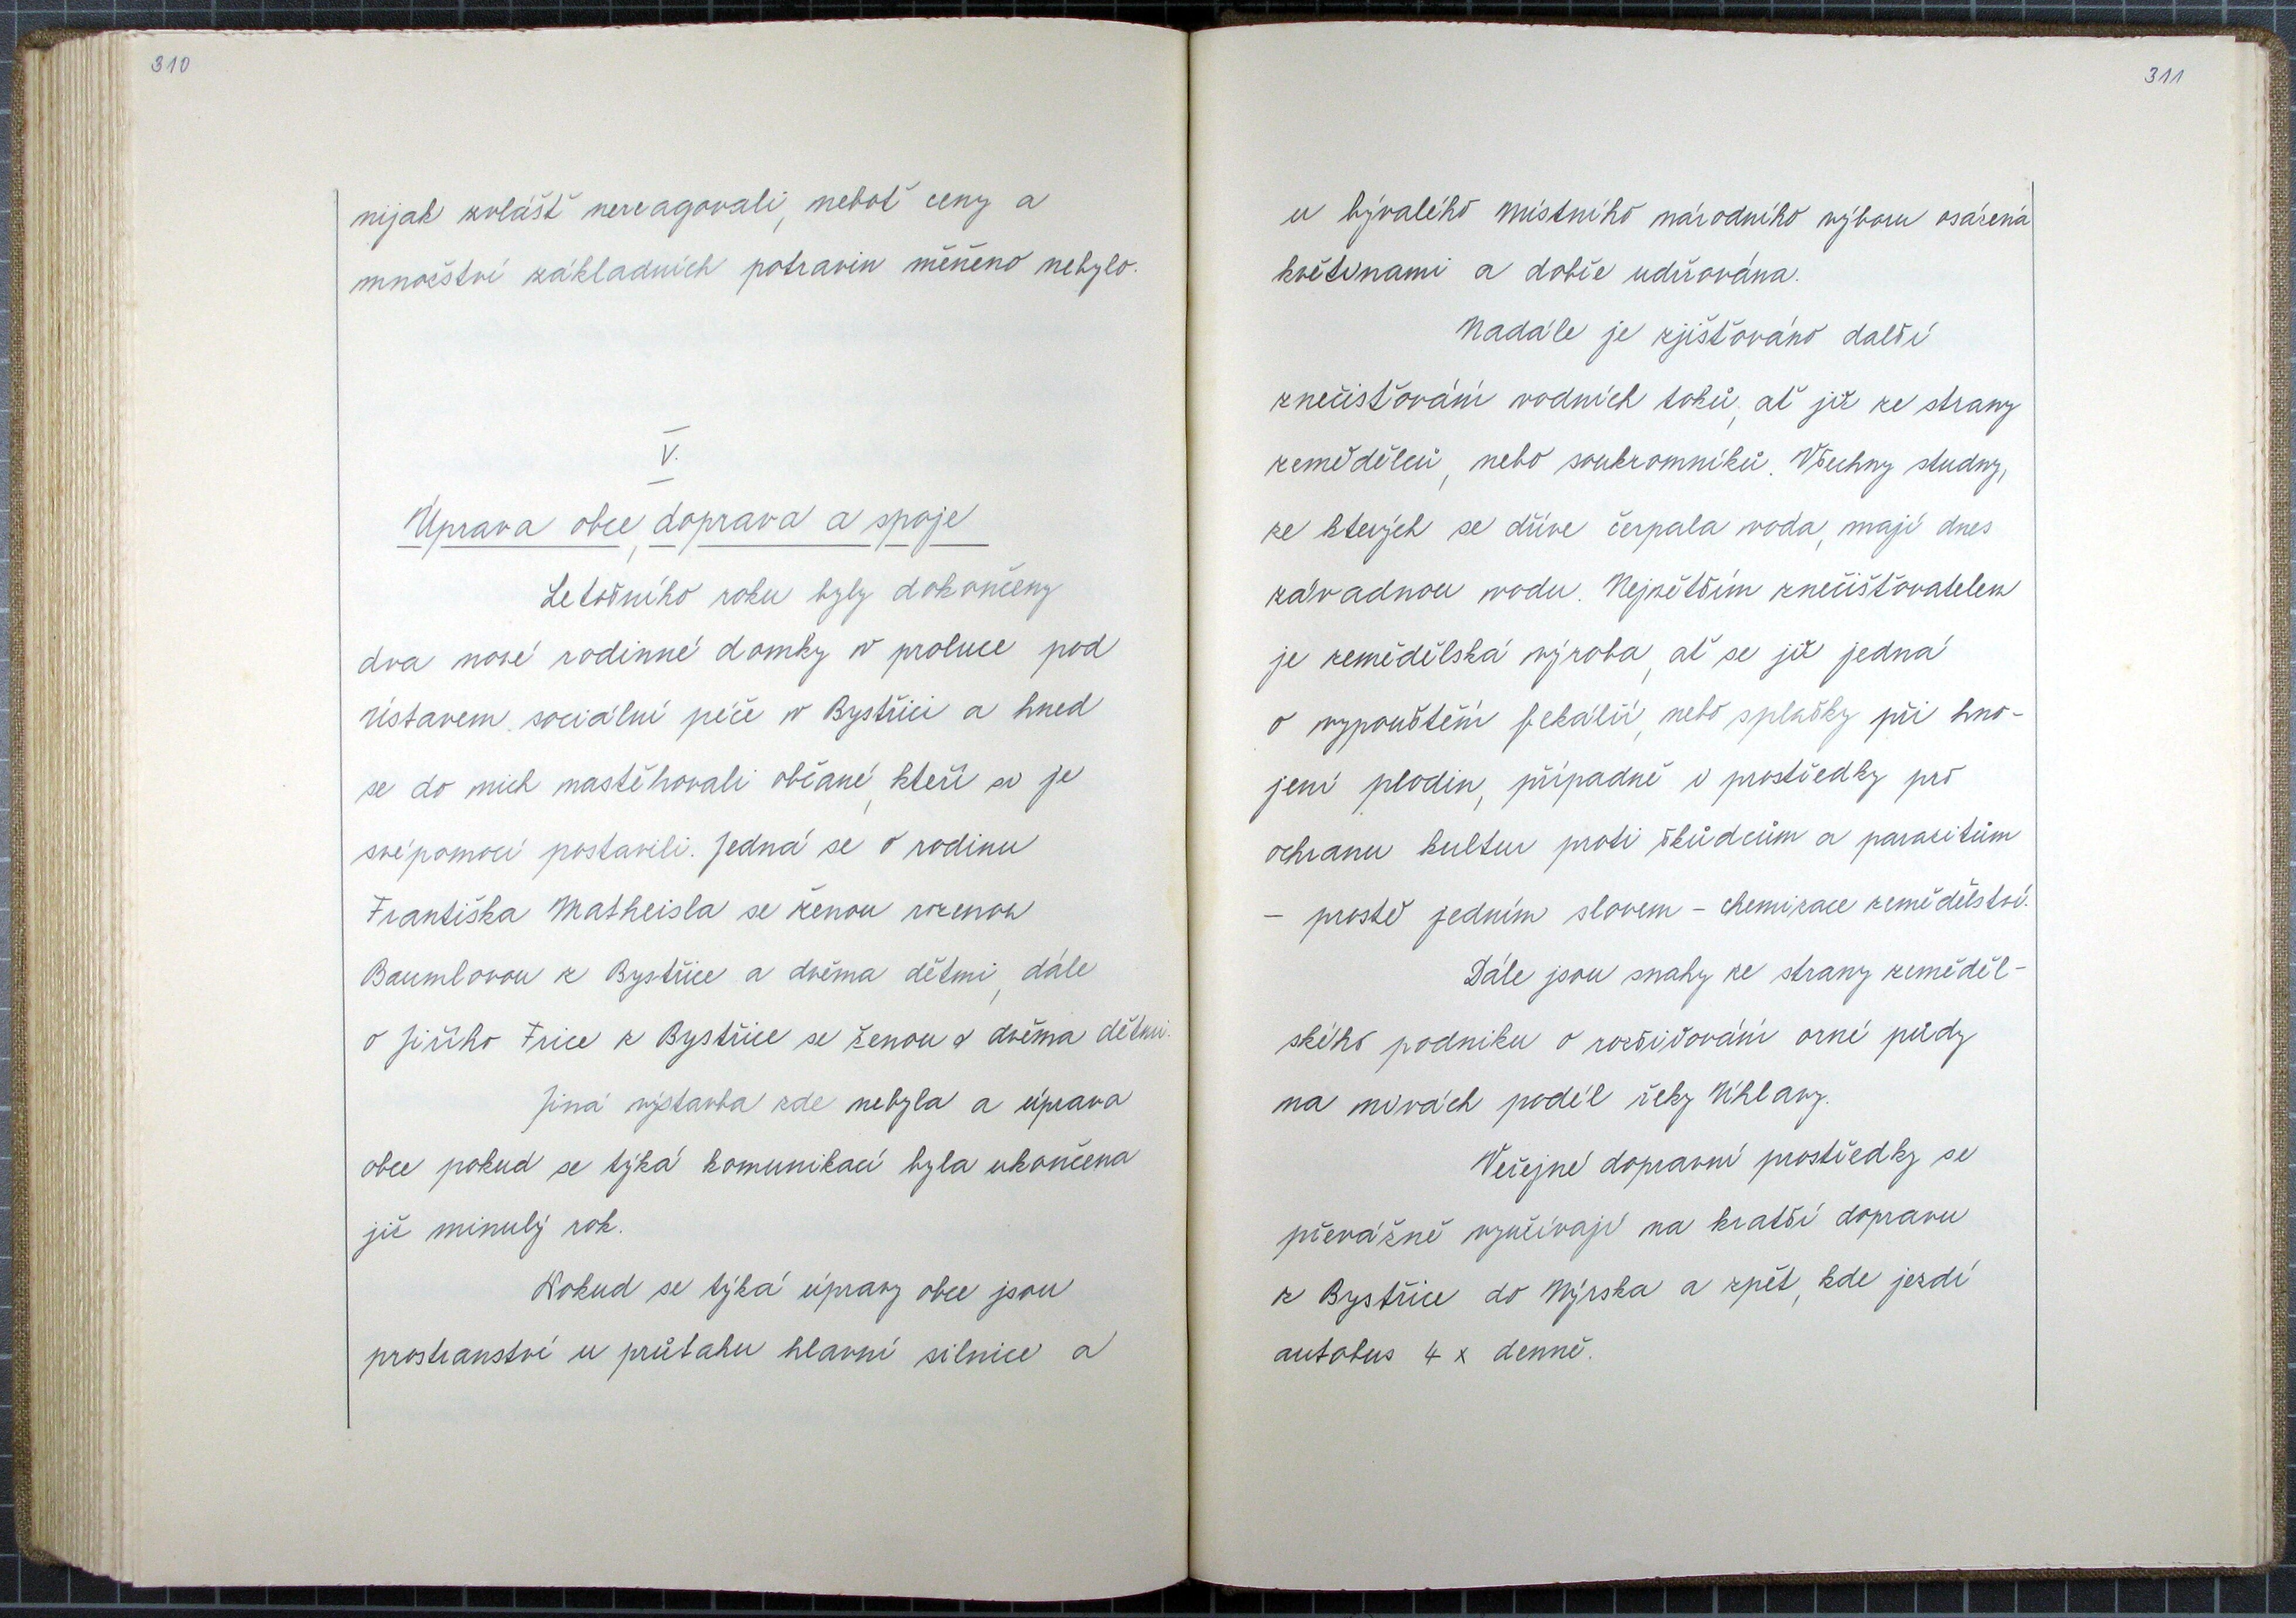 310
nijak zvlášť nereagovali, neboť ceny a
množství základních potravin měněno nebylo.
V.
Úprava obce, doprava a spoje
Letošního roku byly dokončeny
dva nové rodinné domky v proluce pod
Ústavem sociální péče v Bystřici a hned
se do nich nastěhovali občané, kteří si je
svépomocí postavili. Jedná se o rodinu
Františka Matheisla se ženou rozenou
Baumlovou z Bystřice a dvěma dětmi, dále
o Jiřího Frice z Bystřice se ženou a dvěma dětmi.
Jiná výstavba zde nebyla a úprava
obce pokud se týká komunikací byla ukončena
již minulý rok.
Pokud se týká úpravy obce jsou
prostranství u průtahu hlavní silnice a
311
u bývalého Místního národního výboru osázená
květinami a dobře udržována.
Nadále je zjišťováno další
znečisťování vodních toků, ať již ze strany
zemědělců, nebo soukromníků. Všechny studny,
ze kterých se dříve čerpala voda, mají dnes
závadnou vodu. Největším znečišťovatelem
je zemědělská výroba, ať se již jedná
o vypouštění fekálií, nebo splašky při hno-
jení plodin, případně i prostředky pro
ochranu kultur proti škůdcům a parazitům
- prostě jedním slovem - chemizace zemědělství.
Dále jsou snahy ze strany zeměděl-
ského podniku o rozšiřování orné půdy
na nivách podél řeky Úhlavy.
Veřejné dopravní prostředky se
převážně využívají na kratší dopravu
z Bystřice do Nýrska a zpět, kde jezdí
autobus 4 x denně.